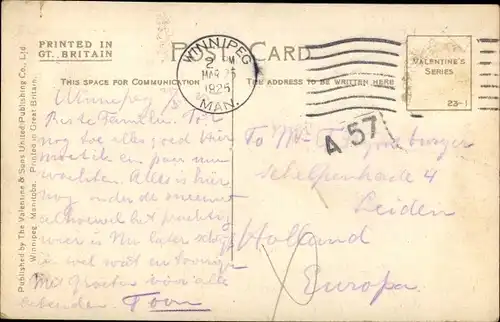 PRINTED IN
GT. BRITAIN
POST CARD
THIS SPACE FOR COMMUNICATION
THE ADDRESS TO BE WRITTEN HERE
WINNIPEG
2 PM
MAR 25
1925
MAN.
VALENTINE'S
SERIES
23-1
A 57
Published by The Valentine & Sons United Publishing Co., Ltd.
Winnipeg, Manitoba. Printed in Great Britain.
Winnepeg
Beste Familie. Tot
nog toe alles goed hier
moet ik een paar uur
wachten. Alles is hier
nog onder de sneeuw
alhoewel het prachtig
weer is Nu later schrijf
ik wel wat en
Met groeten voor alle
Toon
To Mr.
4
Leiden
Holland
Europa.